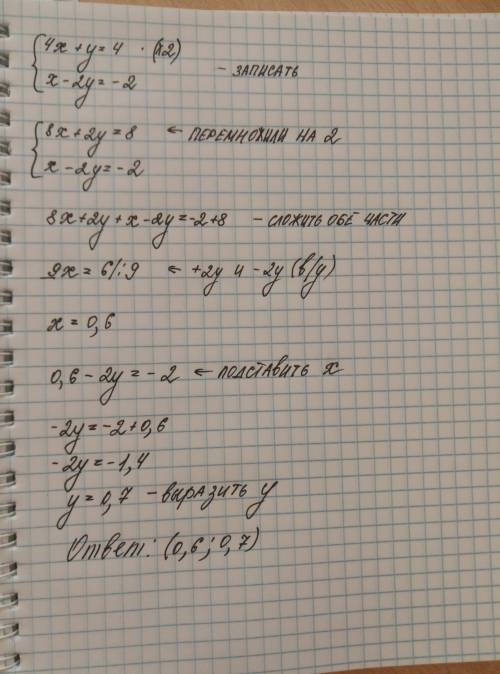 4x + y = 4 · (12)
x - 2y = -2 - ЗАПИСАТЬ
8x + 2y = 8 ← ПЕРЕМНОЖИЛИ НА 2
x - 2y = -2
8x + 2y + x - 2y = -2 + 8 - СЛОЖИТЬ ОБЕ ЧАСТИ
9x = 6 /:9 ← +2y и -2y (в/у)
x = 0,6
0,6 - 2y = -2 ← ПОДСТАВИТЬ x
-2y = -2 + 0,6
-2y = -1,4
y = 0,7 - выразить y
Ответ: (0,6; 0,7)